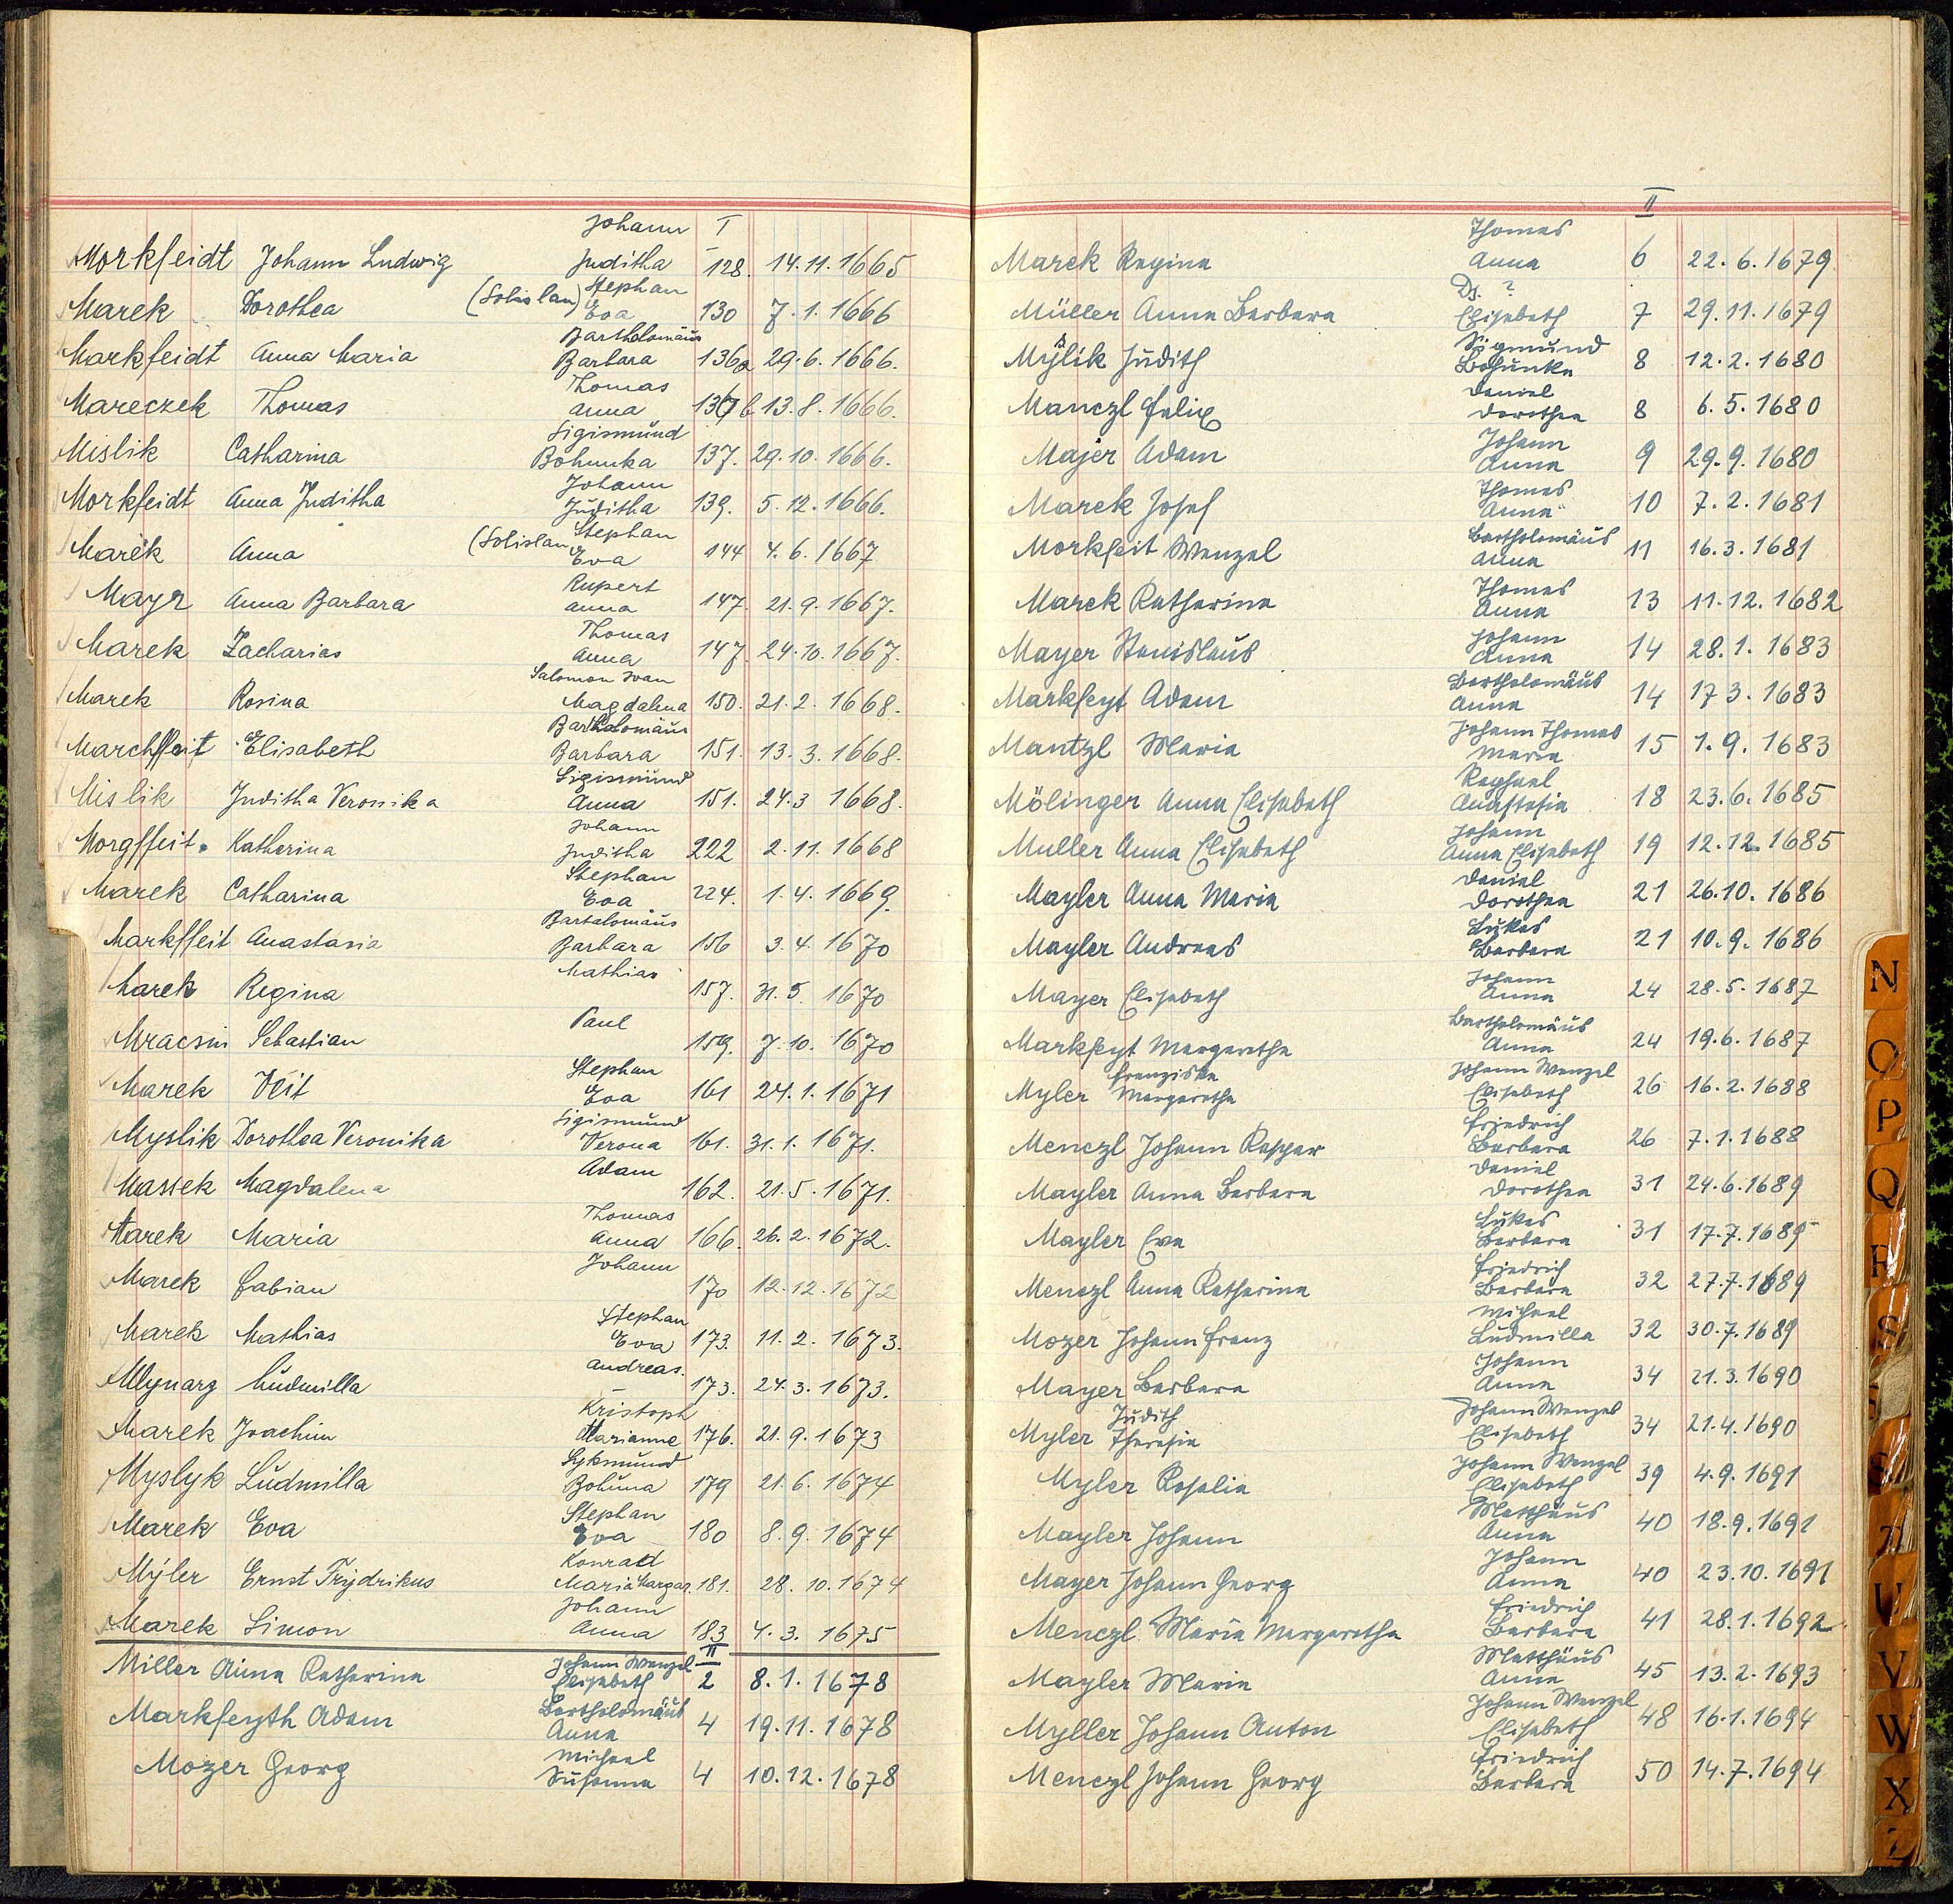 Johann I
Morkfeidt Johann Ludwig Juditha 128. 14.11.1665
Stephan
Marek Dorothea (Solislau) Eva 130 7.1.1666
Bartholomäus
Markfeidt Anna Maria Barbara 136a 29.6.1666.
Thomas
Mareczek Thomas Anna 136b 13.8.1666.
Sigismund
Mislik Catharina Bohunka 137. 29.10.1666.
Johann
Morkfeidt Anna Juditha Juditha 139. 5.12.1666.
(Solislau Stephan
Marek Anna Eva 144 4.6.1667
Rupert
Mayr Anna Barbara Anna 147. 21.9.1667.
Thomas
Marek Zacharias Anna 147. 24.10.1667.
Salomon Ivan
Marek Rosina Magdalena 150. 21.2.1668.
Bartholomäus
Marchffeit Elisabeth Barbara 151. 13.3.1668.
Sigismund
Mislik Juditha Veronika Anna 151. 24.3 1668.
Johann
Morgffeit. Katherina Juditha 222 2.11.1668
Stephan
Marek Catharina Eva 224. 1.4.1669.
Bartalomäus
Markffeit Anastasia Barbara 156 3.4.1670
Mathias
Marek Regina 157. 31.5.1670
Paul
Mracsni Sebastian 159. 7.10.1670
Stephan
Marek Veit Eva 161 24.1.1671
Sigismund
Myslik Dorothea Veronika Verona 161. 31.1.1671.
Adam
Massek Magdalena 162. 21.5.1671.
Thomas
Marek Maria Anna 166. 26.2.1672.
Johann
Marek Fabian 170 12.12.1672
Stephan
Marek Mathias Eva 173. 11.2.1673.
Andreas.
Mlynarz Ludmilla 173. 24.3.1673.
Kristoph
Marek Joachim Marianne 176. 21.9.1673
Sykmund
Myslyk Ludmilla Bohuna 179 21.6.1674
Stephan
Marek Eva Eva 180 8.9.1674
Konrad
Mýler Ernst Frydrikus Maria Margar. 181. 28.10.1674
Johann
Marek Simon Anna 183 4.3.1675
Johann Wenzel II
Miller Anna Katharina Elisabeth 2 8.1.1678
Bartholomäus
Markfeyth Adam Anna 4 19.11.1678
Michael
Mozer Georg Susanna 4 10.12.1678
II
Thomas
Marek Regina Anna 6 22.6.1679
Ds. ?
Müller Anna Barbara Elisabeth 7 29.11.1679
Sigmund
Myslik Judith Bohunka 8 12.2.1680
Daniel
Manczl Felix Dorothea 8 6.5.1680
Johann
Majer Adam Anna 9 29.9.1680
Thomas
Marek Josef Anna 10 7.2.1681
Bartholomäus
Morkfeit Wenzel Anna 11 16.3.1681
Thomas
Marek Katharina Anna 13 11.12.1682
Johann
Mayer Stanislaus Anna 14 28.1.1683
Bartholomäus
Markfeyt Adam Anna 14 17 3.1683
Johann Thomas
Mantzl Maria Maria 15 1.9.1683
Raphael
Mölinger Anna Elisabeth Anastasia 18 23.6.1685
Johann
Muller Anna Elisabeth Anna Elisabeth 19 12.12.1685
Daniel
Mayler Anna Maria Dorothea 21 26.10.1686
Lukas
Mayler Andreas Barbara 21 10.9.1686
Johann
Mayer Elisabeth Anna 24 28.5.1687
Bartholomäus
Markfeyt Margaretha Anna 24 19.6.1687
Franziska Johann Wenzel
Myler Margaretha Elisabeth 26 16.2.1688
Friedrich
Menczl Johann Kaspar Barbara 26 7.1.1688
Daniel
Mayler Anna Barbara Dorothea 31 24.6.1689
Lukas
Mayler Eva Barbara 31 17.7.1689
Friedrich
Menczl Anna Katharina Barbara 32 27.7.1689
Michael
Mozer Johann Franz Ludmilla 32 30.7.1689
Johann
Mayer Barbara Anna 34 21.3.1690
Judith Johann Wenzel
Myler Theresia Elisabeth 34 21.4.1690
Johann Wenzel
Myler Rosalia Elisabeth 39 4.9.1691
Matthäus
Mayler Johann Anna 40 18.9.1691
Johann
Mayer Johann Georg Anna 40 23.10.1691
Friedrich
Menczl Maria Margaretha Barbara 41 28.1.1692
Matthäus
Mayler Maria Anna 45 13.2.1693
Johann Wenzel
Myller Johann Anton Elisabeth 48 16.1.1694
Friedrich
Menczl Johann Georg Barbara 50 14.7.1694
N
O
P
Q
R
S
U
V
W
X
Z